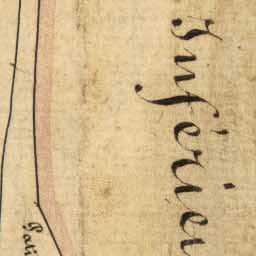 Inférieu
Pati